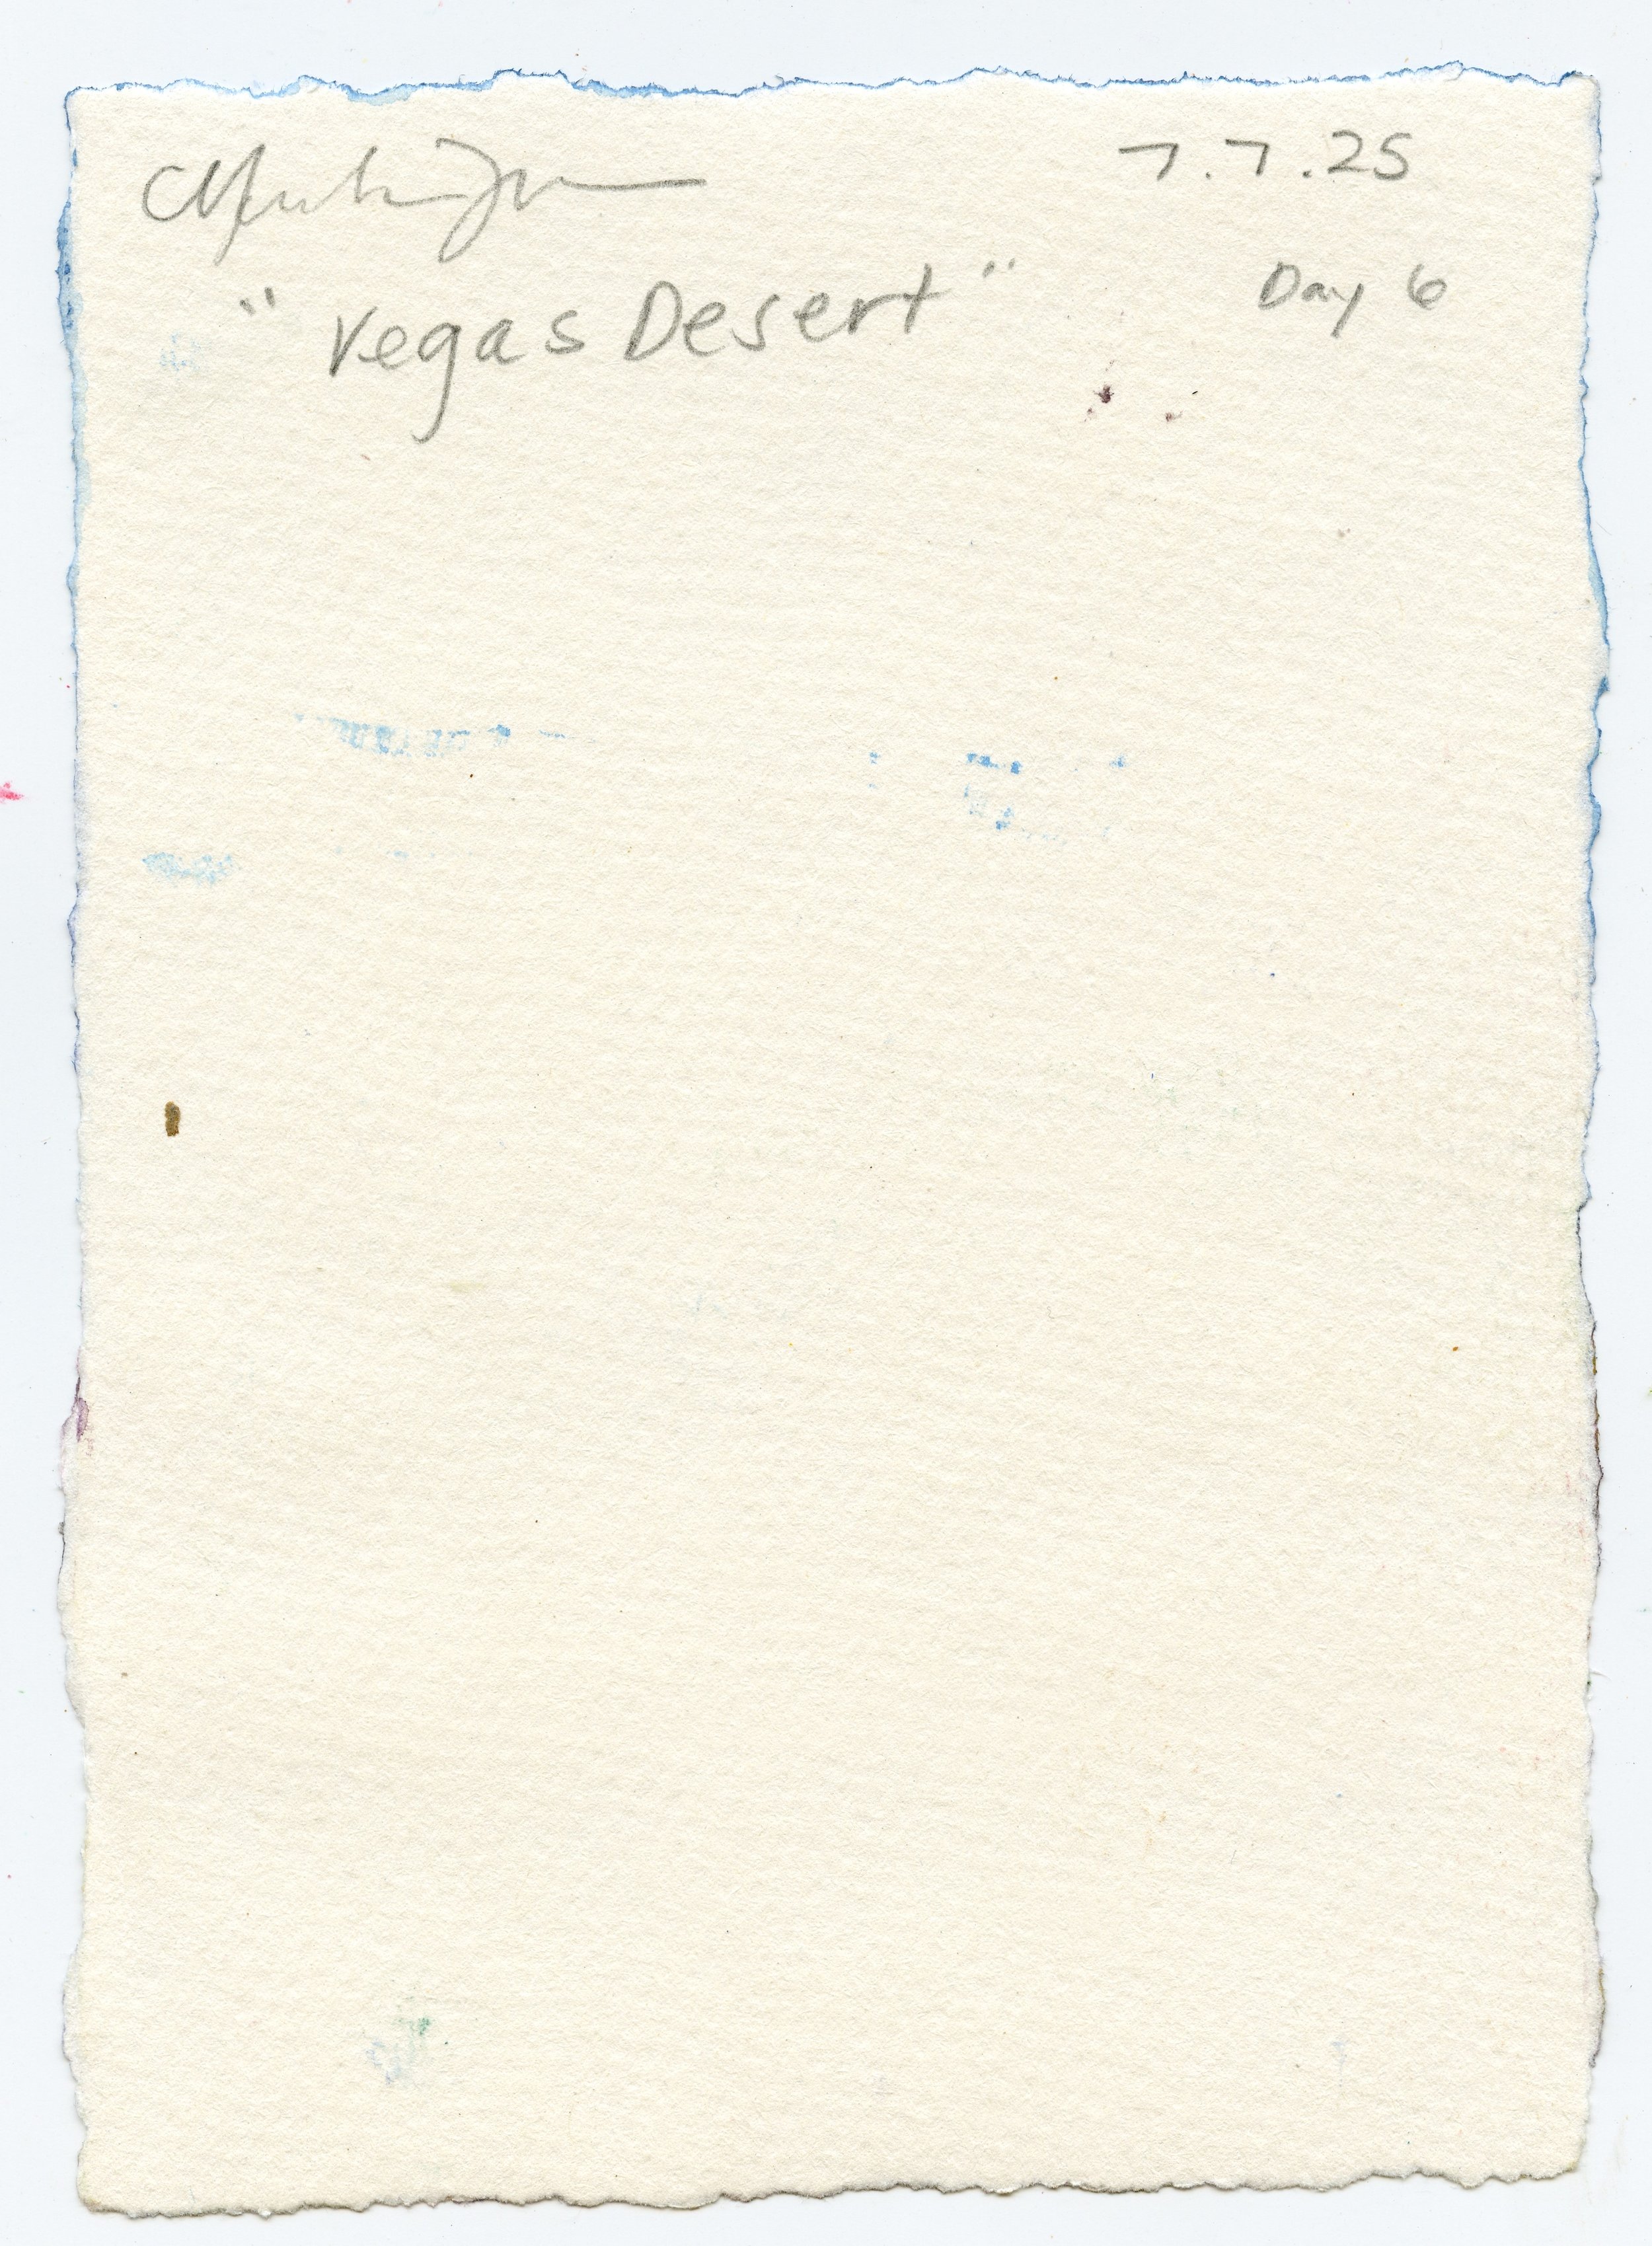 7.7.25
"Vegas Desert"
Day 6